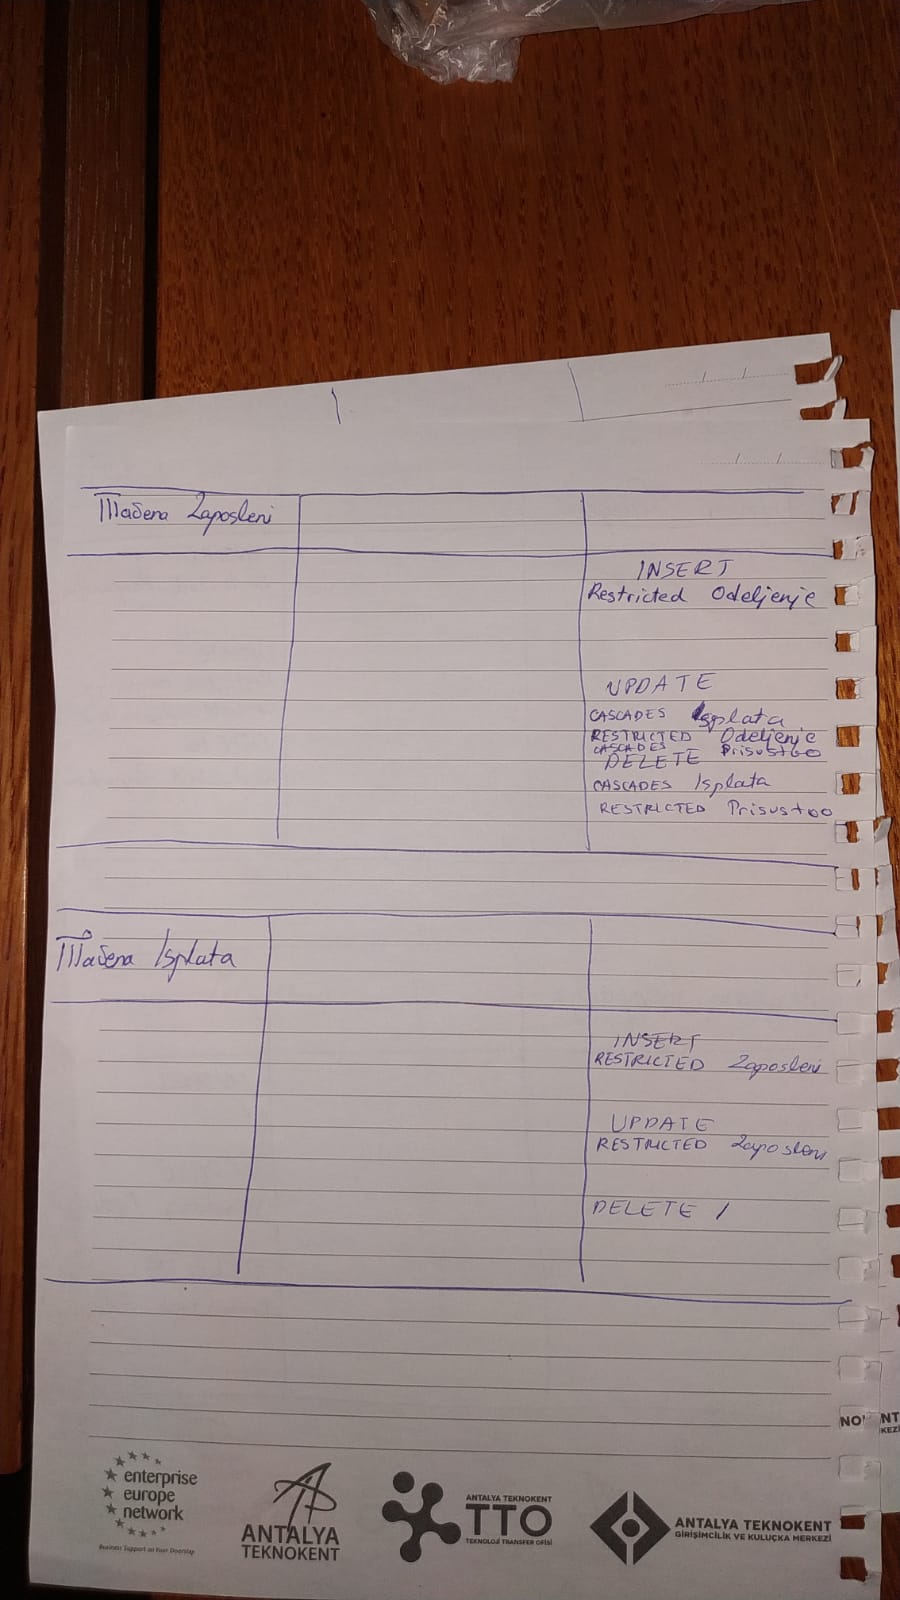 Tabela Zaposleni
INSERT
Restricted Odeljenje
UPDATE
CASCADES Isplata
RESTRICTED Odeljenje
CASCADES Prisustvo
DELETE
CASCADES Isplata
RESTRICTED Prisustvo
Tabela Isplata
INSERT
RESTRICTED Zaposleni
UPDATE
RESTRICTED Zaposleni
DELETE /
enterprise
europe
network
Business Support on Your Doorstep
ANTALYA
TEKNOKENT
ANTALYA TEKNOKENT
TTO
TEKNOLOJİ TRANSFER OFİSİ
ANTALYA TEKNOKENT
GİRİŞİMCİLİK VE KULUÇKA MERKEZİ